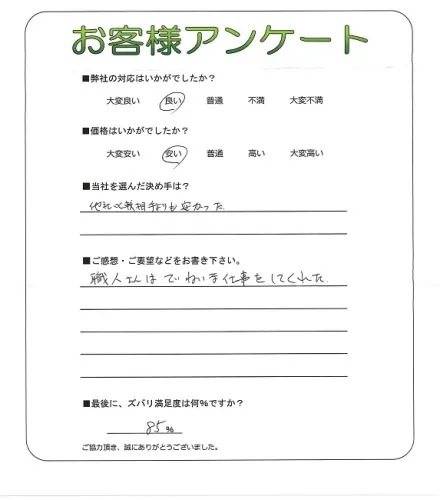 お客様アンケート
■弊社の対応はいかがでしたか？
大変良い 良い 普通 不満 大変不満
■価格はいかがでしたか？
大変安い 安い 普通 高い 大変高い
■当社を選んだ決め手は？
他社 より 安かった
■ご感想・ご要望などをお書き下さい。
職人さんはていねいな仕事をしてくれた
■最後に、ズバリ満足度は何%ですか？
85%
ご協力頂き、誠にありがとうございました。